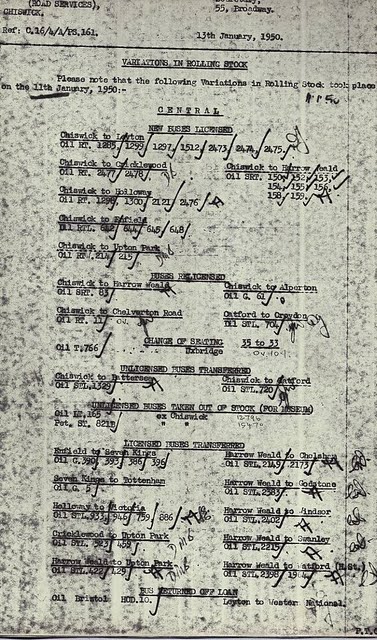 (ROAD SERVICES),
CHISWICK.
55, Broadway.
Ref: C.16/4/A/PS.161.
13th January, 1950.
VARIATIONS IN ROLLING STOCK
Please note that the following Variations in Rolling Stock took place
on the 11th January, 1950:-
CENTRAL
NEW BUSES LICENSED
Chiswick to Leyton
Oil RT. 1285 1299 1297 1512 2473 2474 2475.
Chiswick to Cricklewood
Oil RT. 2477 2478.
Chiswick to Harrow Weald
Oil SRT. 150 152 153
154 155 156
158 159.
Chiswick to Holloway
Oil RT. 1298 1300 2121 2476
Chiswick to Enfield
Oil RTL. 642 644 645 648
Chiswick to Upton Park
Oil RT. 214 215
BUSES RELICENSED
Chiswick to Harrow Weald
Oil SRT. 83
Chiswick to Alperton
Oil G. 61
Chiswick to Chelverton Road
Oil RT. 11
Catford to Croydon
Oil STL. 704
CHANGE OF SEATING 35 to 33
Oil T.766 Uxbridge
UNLICENSED BUSES TRANSFERRED
Chiswick to Battersea
Oil STL.1329
Chiswick to Catford
Oil STL.720
UNLICENSED BUSES TAKEN OUT OF STOCK (FOR MUSEUM)
Oil LT.165 ex Chiswick
Pet. ST. 821 " "
LICENSED BUSES TRANSFERRED
Enfield to Seven Kings
Oil G.390 393 386 396
Harrow Weald to Chelsham
Oil STL.2149 2173
Seven Kings to Tottenham
Oil G. 5
Harrow Weald to Godstone
Oil STL.2383
Holloway to Victoria
Oil STL.933 946 759 886
Harrow Weald to Windsor
Oil STL.2402
Cricklewood to Upton Park
Oil STL. 523 459
Harrow Weald to Swanley
Oil STL.2215
Harrow Weald to Upton Park
Oil STL.422 129
Harrow Weald to Watford (H.St.)
Oil STL.2398
BUS RETURNED OFF LOAN
Oil Bristol HOD.10. Leyton to Wester National.